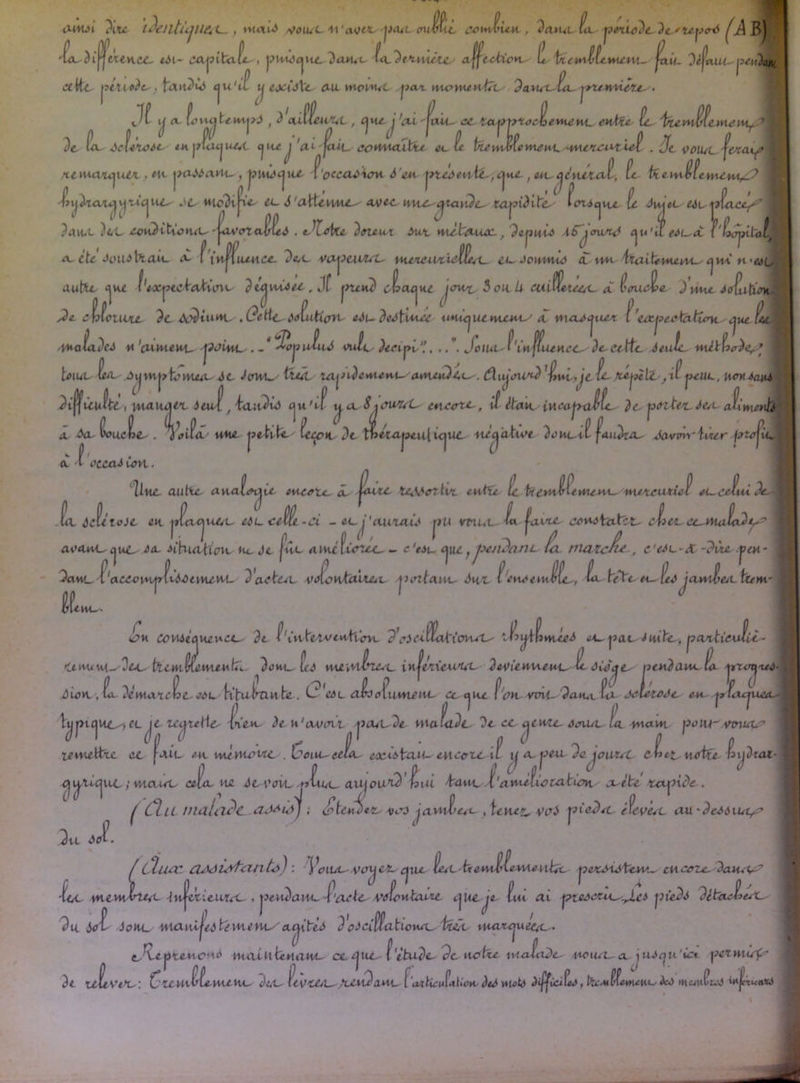 ainsi dire identiques, mais vous n'avez pas oublié combien, dans la période de repos (A B)
la différence est capitale, puisque dans la dernière affection le tremblement fait défaut pendant
cette période, tandis qu'il existe au moins par moments dans la première.
Il y a longtemps, d'ailleurs, que j'ai fait ce rapprochement entre le tremblement
de la sclérose en plaques que j'ai fait connaître et le tremblement mercuriel. Je vous ferai
remarquer, en passant, puisque l'occasion s'en présente, que, en général, le tremblement
hydrargyrique se modifie et s'atténue avec une grande rapidité lorsque le sujet est placé
dans des conditions favorables. Notre doreur sur métaux, depuis 15 jours qu'il est à l'hôpital,
a été soustrait à l'influence des vapeurs mercurielles et soumis à un traitement qui n'est
autre que l'expectation déguisée. Il prend chaque jour 3 ou 4 cuillerées à bouche d'une solution
de chlorure de sodium. Cette solution est destinée uniquement à masquer l'expectation que les
malades n'aiment point. - "Populus vult decipi". ... Sous l'influence de cette seule méthode,
tous les symptômes se sont très rapidement amendés. Aujourd'hui, je le répète, il peut, non sans
difficulté, manger seul, tandis qu'il y a 8 jours encore, il était incapable de porter ses aliments
à sa bouche. Voilà une petite leçon de thérapeutique négative dont il faudra savoir tirer profit
à l'occasion.
Une autre analogie encore à faire ressortir entre le tremblement mercuriel et celui de
la sclérose en plaques est celle-ci - et j'aurais pu vous la faire constater chez ce malade
avant que sa situation ne se fût améliorée - c'est que, pendant la marche, c'est-à-dire pen-
dant l'accomplissement d'actes volontaires portant sur l'ensemble, la tête et les jambes trem-
blent.
En conséquence de l'intervention d'oscillations rhythmées et par suite, particuliè-
rement des tremblements dont les membres inférieurs deviennent le siège pendant la progres-
sion, la démarche est titubante. C'est absolument ce que l'on voit dans la sclérose en plaques
typique, et je regrette bien de n'avoir pas de malade de ce genre sous la main pour vous
remettre ce fait en mémoire. Tout cela existait encore il y a peu de jours chez notre hydrar-
gyrique; mais cela ne se voit plus aujourd'hui tant l'amélioration a été rapide.
(Au malade assis): Etendez vos jambes, tenez vos pieds élevés au-dessus
du sol.
(Aux assistants): Vous voyez que les tremblements persistent encore dans
les membres inférieurs, pendant l'acte volontaire que je lui ai prescrit, les pieds détachés
du sol sont manifestement agités d'oscillations très marquées.
Reprenons maintenant ce que l'étude de notre malade nous a jusqu'ici permis
de relever: Tremblement des lèvres pendant l'articulation des mots difficiles, tremblement des membres inférieurs